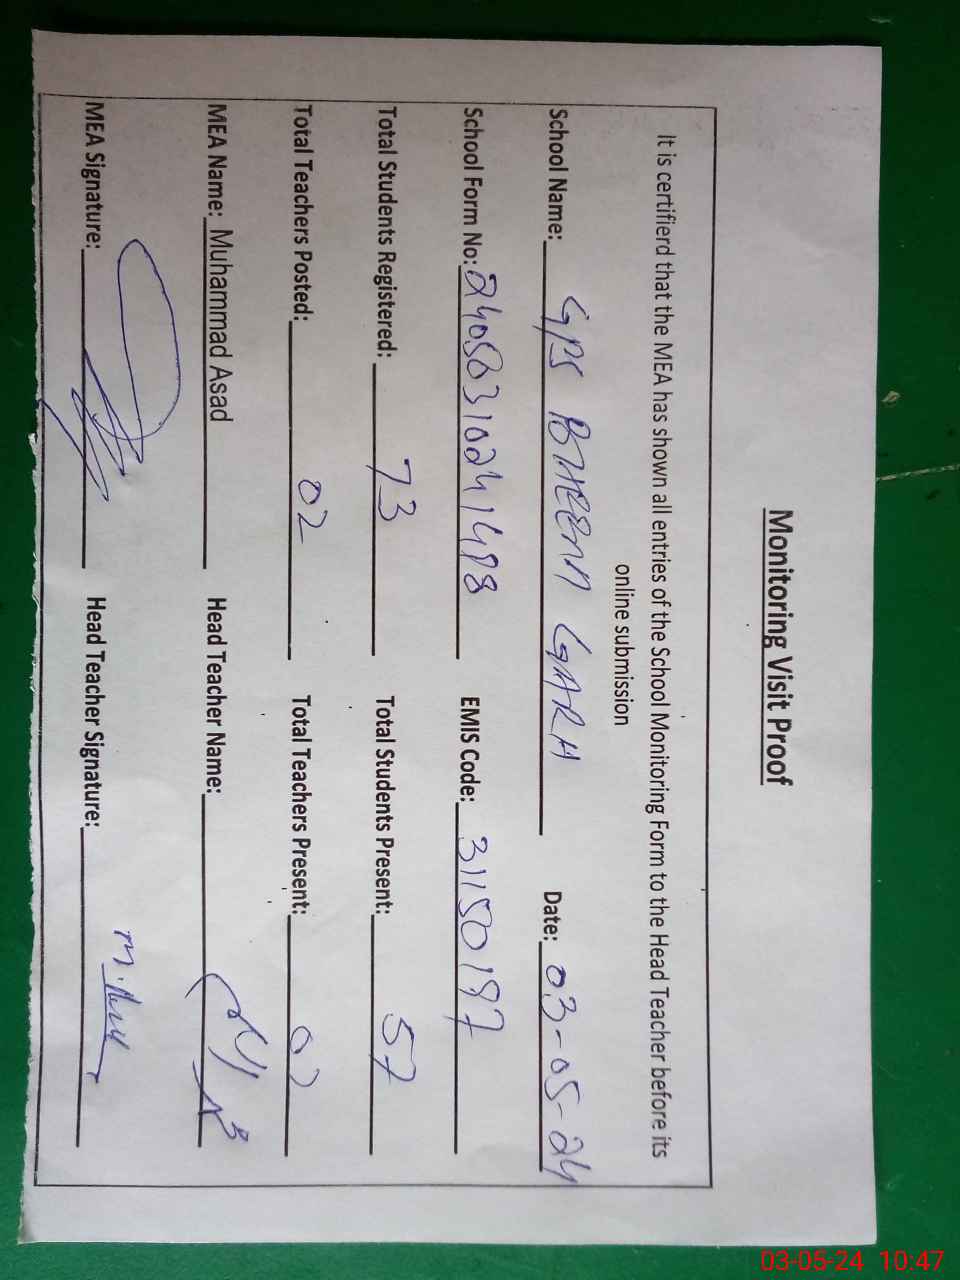 Monitoring Visit Proof
It is certifierd that the MEA has shown all entries of the School Monitoring Form to the Head Teacher before its
online submission
School Name: GPS BHEENN GARH Date: 03-05-24
School Form No: EMIS Code: 31150197
Total Students Registered: 73 Total Students Present: 57
Total Teachers Posted: 02 Total Teachers Present: 02
MEA Name: Muhammad Asad Head Teacher Name:
MEA Signature: Head Teacher Signature:
03-05-24 10:47